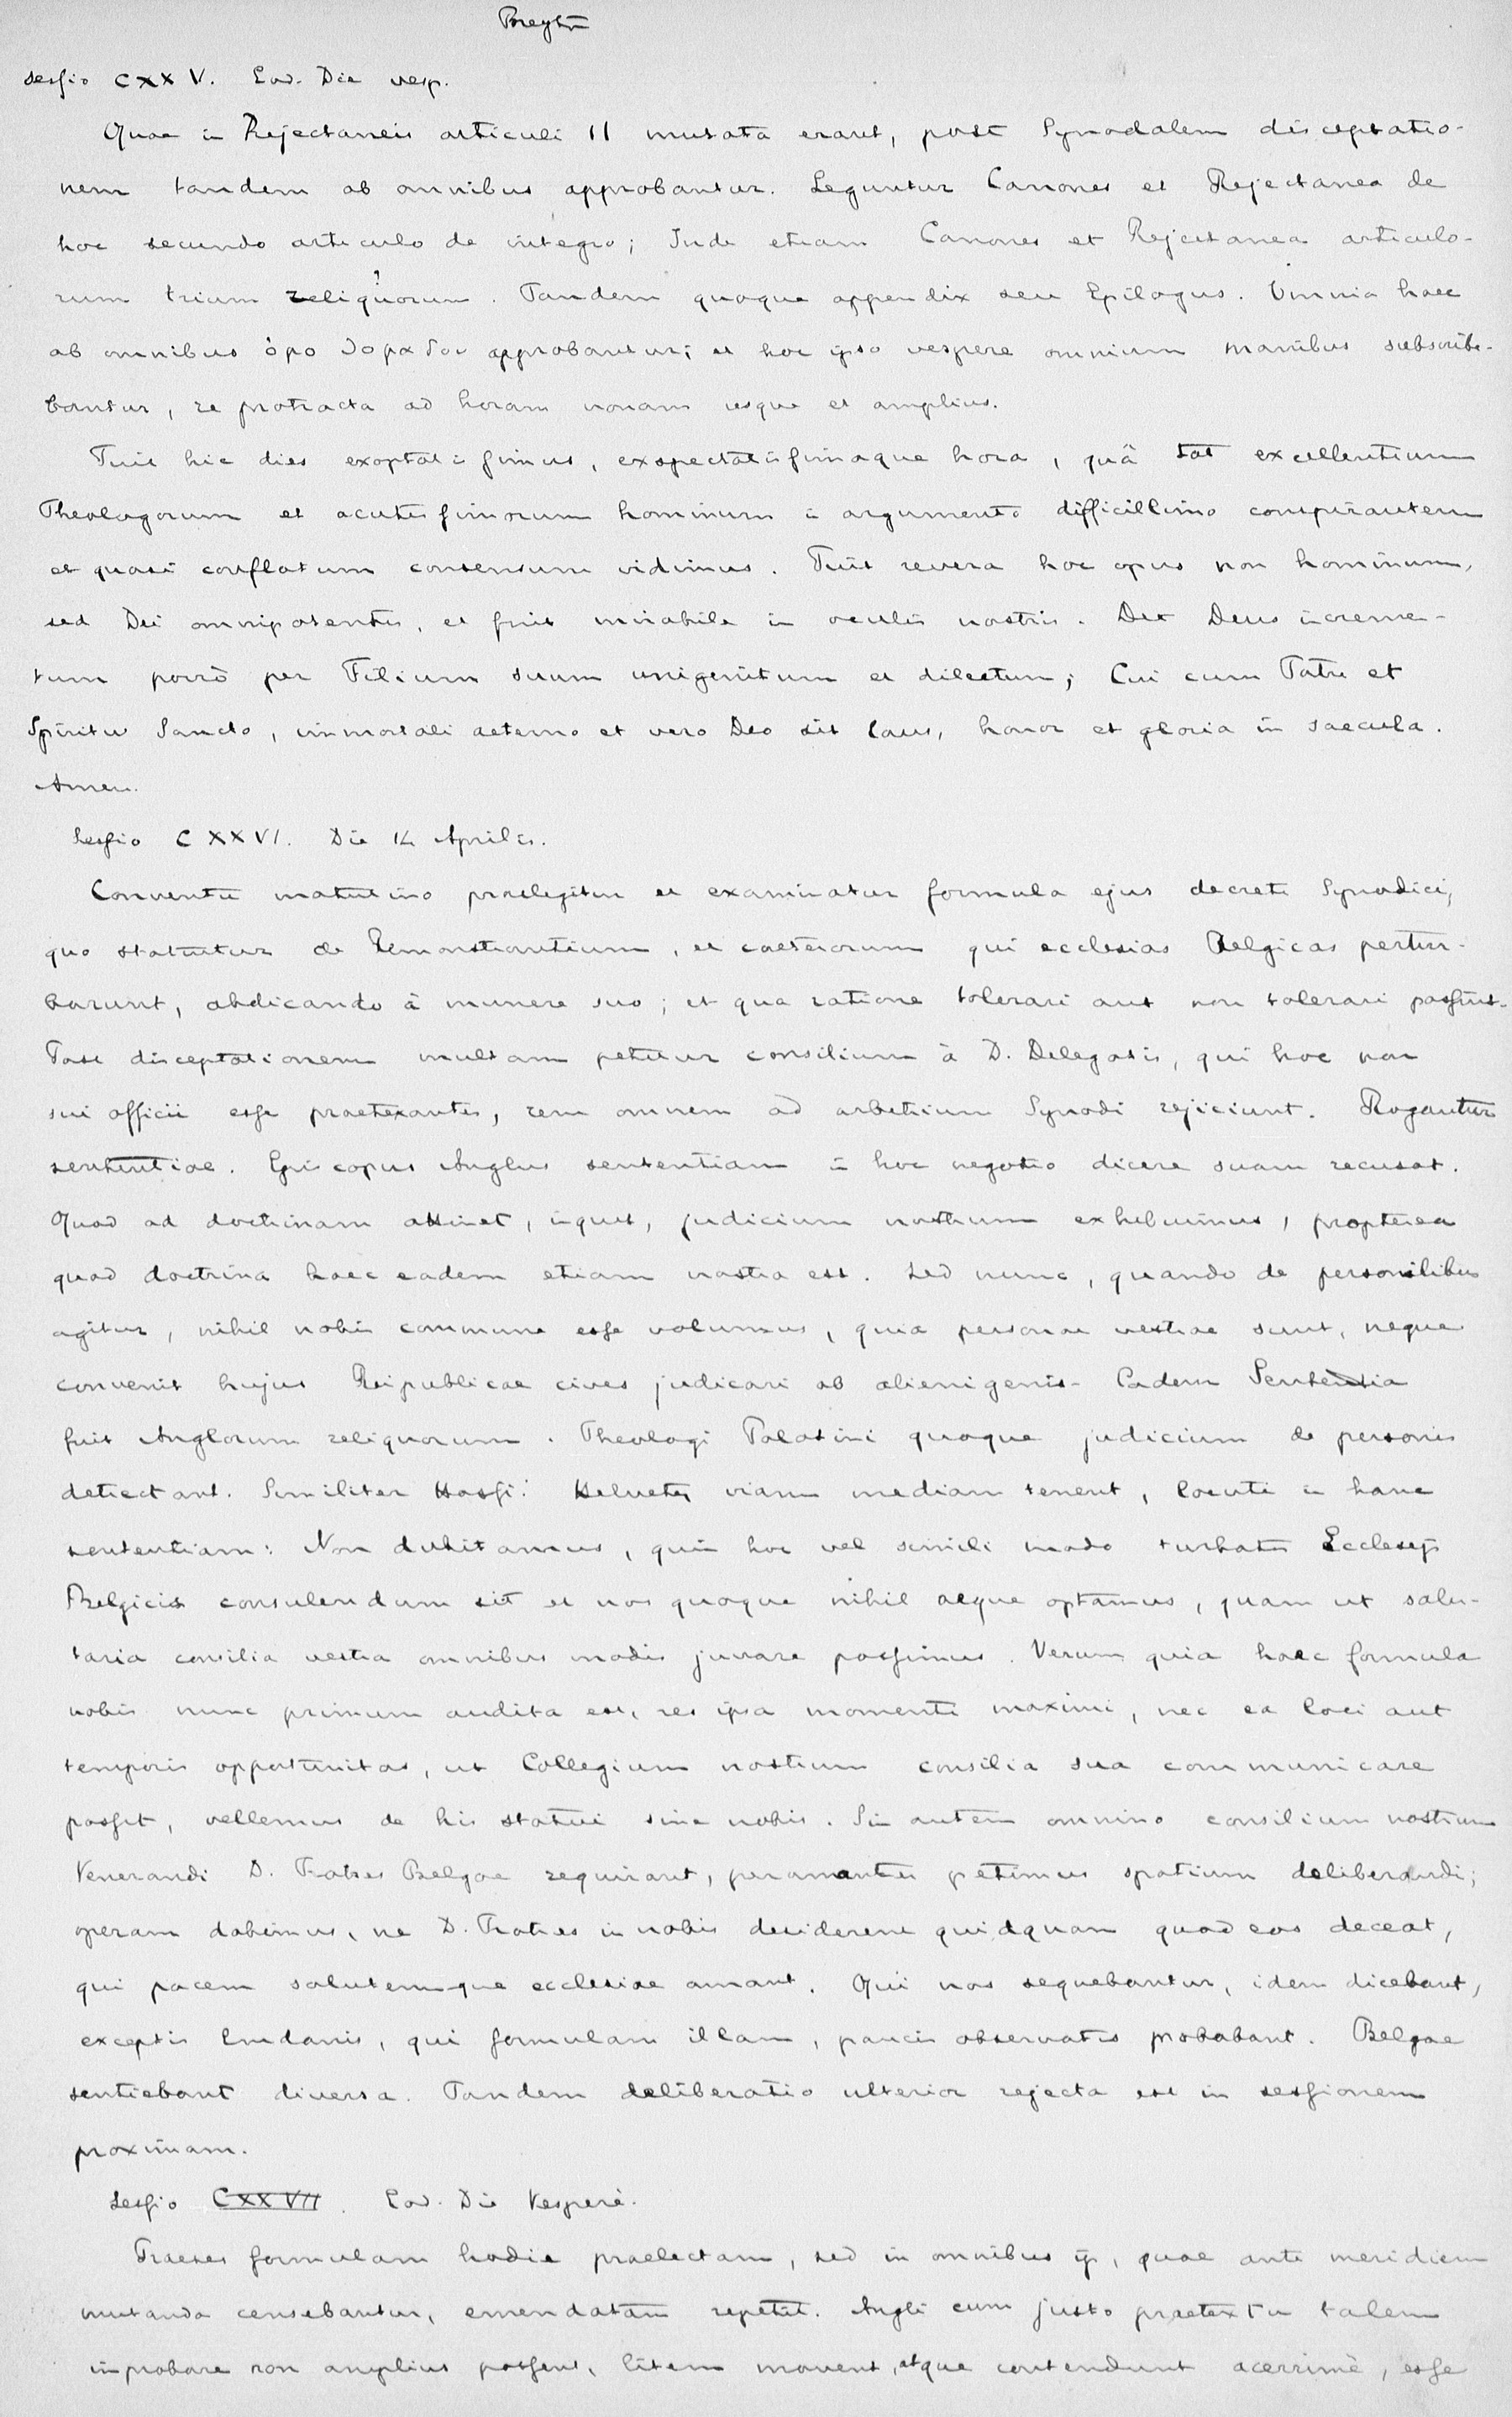 Sessio CXXV. Eod. Die vesp.
Quae in Rejectaneis articuli II mutata erant, post Synodalem disceptatio-
nem tandem ab omnibus approbantur. Leguntur Canones et Rejectanea de
hoc secundo articulo de integro; Inde etiam Canones et Rejectanea articulo-
rum trium reliquorum. Tandem quoque appendix seu Epilogus. Omnia haec
ab omnibus approbantur; et hoc ipso vespere omnium manibus subscribe-
bantur, re protracta ad horam nonam usque et amplius.
Fuit hic dies exoptatissimus, exspectatissimaque hora, quâ tot excellentium
Theologorum et acutissimorum hominum in argumento difficillimo conspirantem
et quasi conflatum consensum vidimus. Fuit revera hoc opus non hominum,
sed Dei omnipotentis, et fuit mirabile in oculis nostris. Det Deus increme-
tum porrò per Filium suum unigenitum et dilectum; Cui cum Patre et
Spiritu Sancto, immortali aeterno et vero Deo sit laus, honor et gloria in saecula.
Amen.
Sessio CXXVI. Die 14 Aprilis.
Conventu matutino praelegitur et examinatur formula ejus decreti Synodici,
quo statuitur de Remonstrantium, et caeterorum qui ecclesias Belgicas pertur-
barunt, abdicando à munere suo; et qua ratione tolerari aut non tolerari possint.
Post disceptationem multam petitur consilium à D. Delegatis, qui hoc non
sui officii esse praetexantes, rem omnem ad arbitrium Synodi rejiciunt. Rogantur
sententiae. Episcopus Anglus sententiam in hoc negotio dicere suam recusat.
Quod ad doctrinam attinet, inquit, judicium nostrum exhibuimus, propterea
quod doctrina haec eadem etiam nostra est. Sed nunc, quando de personalibus
agitur, nihil nobis commune esse volumus, quia personae vestrae sunt, neque
convenit hujus Reipublicae cives judicari ab alienigenis. Eadem Sententia
fuit Anglorum reliquorum. Theologi Palatini quoque judicium de personis
detrectant. Similiter Hassi. Helvetij viam mediam tenent, locuti in hanc
sententiam: Non dubitamus, quin hoc vel simili modo turbatis Ecclesijs
Belgicis consulendum sit et nos quoque nihil aeque optamus, quam ut salu-
taria consilia vestra omnibus modis juvare possimus. Verum quia haec formula
nobis nunc primum audita est, res ipsa momenti maximi, nec ea loci aut
temporis opportunitas, ut Collegium nostrum consilia sua communicare
possit, vellemus de his statui sine nobis. Sin autem omnino consilium nostrum
Venerandi D. Fratres Belgae requirant, peramanter petimus spatium deliberandi;
operam dabimus, ne D. Fratres in nobis desiderent quidquam quod eos deceat,
qui pacem salutemque ecclesiae amant. Qui nos sequebantur, idem dicebant,
exceptis Emdanis, qui formulam illam, paucis observatis probabant. Belgae
sentiebant diversa. Tandem deliberatio ulterior rejecta est in sessionem
proximam.
Sessio CXXVII. Eod. Die Vesperi.
Praeses formulam hodie praelectam, sed in omnibus ijs, quae ante meridiem
mutanda censebantur, emendatam repetit. Angli cum justo praetextu talem
improbare non amplius possent, litem movent, atque contendunt acerrimè, esse